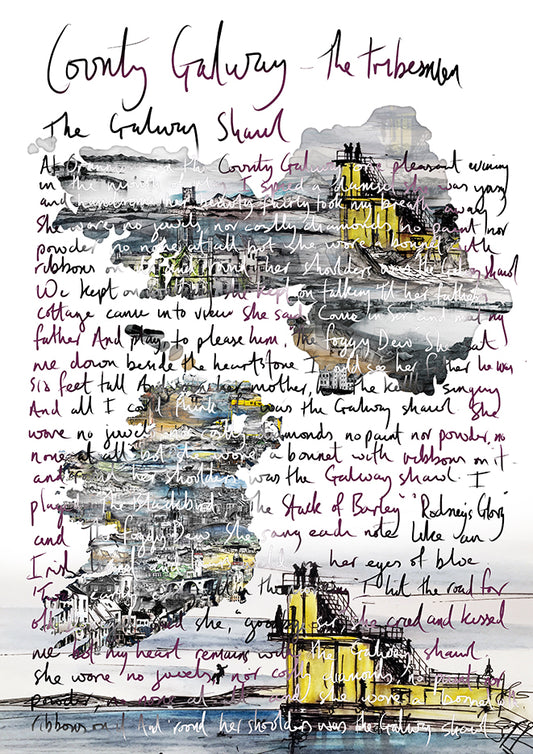 County Galway - The Tribesmen
The Galway Shawl
At and the County Galway one pleasant evening
in the month of I spied a damsel she was young
and her beauty fairly took my breath away
She wore no jewels, nor costly diamonds no paint nor
powder, no none at all but she wore a bonnet with
ribbons on it and round her shoulders was the Galway shawl
We kept on she kept on talking 'til her father's
cottage came into view She said Come in Sir and meet my
father And play to please him, The Foggy Dew She sat
me down beside the hearthstone I could see her father he was
six feet tall And her mother, had the kettle singing
And all I could think of was the Galway shawl She
wore no jewels nor costly diamonds, no paint nor powder, no
none at all but she wore a bonnet with ribbons on it
and round her shoulders was the Galway shawl. I
played The Blackbird The Stack of Barley" "Rodney's Glory"
and The Foggy Dew She sang each note like an
Irish her eyes of blue
'Twas I hit the road for
old said she, "goodbye sir, she cried and kissed
me but my heart remains with the Galway shawl
She wore no jewels, nor costly diamonds, no paint nor
powder, no none at all and she wore a bonnet with
ribbons on it And round her shoulders was the Galway shawl